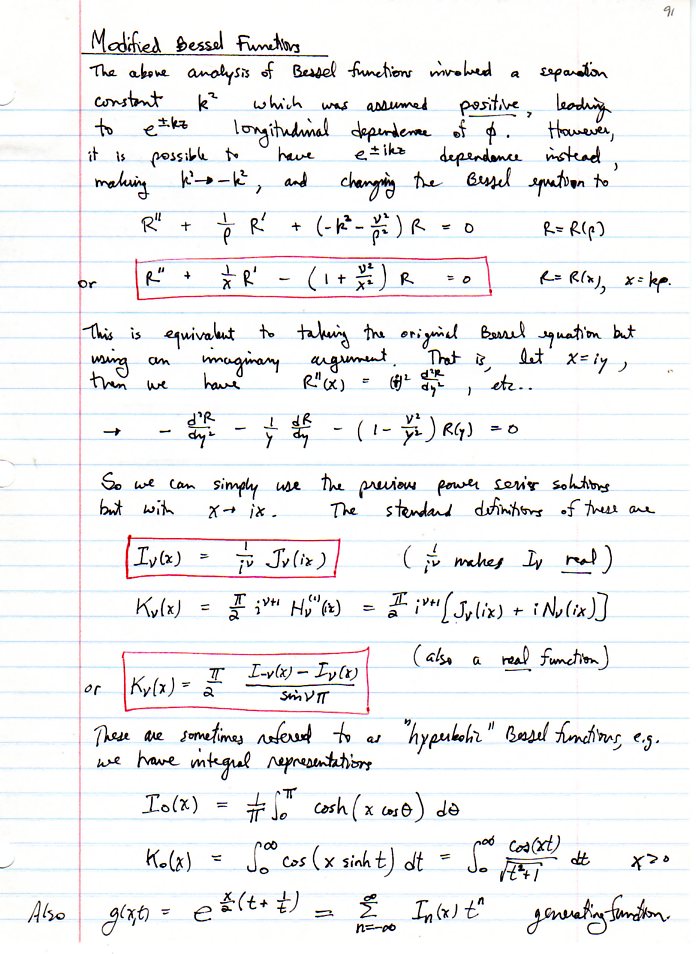 91
Modified Bessel Functions
The above analysis of Bessel functions involved a separation
constant k² which was assumed positive, leading
to e^{±kz} longitudinal dependence of ϕ. However,
it is possible to have e^{±ikz} dependence instead,
making k²→-k², and changing the Bessel equation to
R'' + 1/ρ R' + (-k² - ν²/ρ²) R = 0 R = R(ρ)
or R'' + 1/x R' - (1 + ν²/x²) R = 0 R = R(x), x = kρ.
This is equivalent to taking the original Bessel equation but
using an imaginary argument. That is, let x = iy,
then we have R''(x) = ² d²R/dy², etc..
→ - d²R/dy² - 1/y dR/dy - (1 - ν²/y²) R(y) = 0
So we can simply use the previous power series solutions
but with x → ix. The standard definitions of these are
I_ν(x) = 1/i^ν J_ν(ix) (1/i^ν makes I_ν real)
K_ν(x) = π/2 i^{ν+1} H_ν^{(1)}(ix) = π/2 i^{ν+1} [J_ν(ix) + i N_ν(ix)]
(also a real function)
or K_ν(x) = π/2 (I_{-ν}(x) - I_ν(x))/sin νπ
These are sometimes refered to as "hyperbolic" Bessel functions, e.g.
we have integral representations
I₀(x) = 1/π ∫₀^π cosh(x cosθ) dθ
K₀(x) = ∫₀^∞ cos(x sinh t) dt = ∫₀^∞ cos(xt)/√(t²+1) dt x>0
Also g(x,t) = e^{x/2 (t + 1/t)} = ∑_{n=-∞}^∞ I_n(x) t^n generating function.